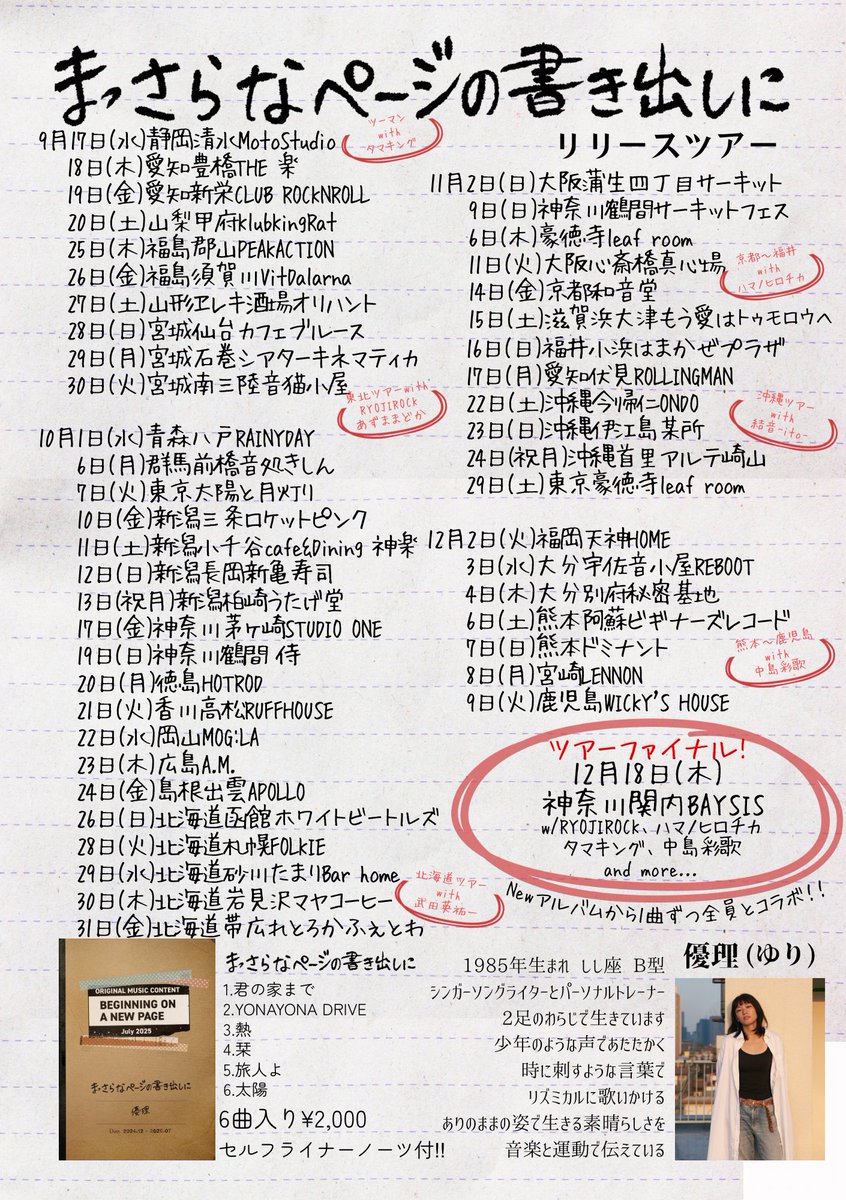 まっさらなページの書き出しに
リリースツアー
9月17日(水)静岡清水MotoStudio
ツーマン
with
タマキング
18日(木)愛知豊橋THE 楽
19日(金)愛知新栄CLUB ROCKNROLL
20日(土)山梨甲府KlubkingRat
25日(木)福島郡山PEAKACTION
26日(金)福島須賀川VitDalarna
27日(土)山形ヱレキ酒場オリハント
28日(日)宮城仙台カフェブルース
29日(月)宮城石巻シアターキネマティカ
30日(火)宮城南三陸音猫小屋
東北ツアーwith
RYOJIROCK
あずままどか
10月1日(水)青森八戸RAINYDAY
6日(月)群馬前橋音処きしん
7日(火)東京太陽と月灯り
10日(金)新潟三条ロケットピンク
11日(土)新潟小千谷cafe&Dining 神楽
12日(日)新潟長岡新亀寿司
13日(祝月)新潟柏崎うたげ堂
17日(金)神奈川茅ヶ崎STUDIO ONE
19日(日)神奈川鶴間 侍
20日(月)徳島HOTROD
21日(火)香川高松RUFFHOUSE
22日(水)岡山MOG:LA
23日(木)広島A.M.
24日(金)島根出雲APOLLO
26日(日)北海道函館ホワイトビートルズ
28日(火)北海道札幌FOLKIE
29日(水)北海道砂川たまりBar home
30日(木)北海道岩見沢マヤコーヒー
31日(金)北海道帯広れとろかふぇとわ
北海道ツアー
with
武田英祐一
11月2日(日)大阪蒲生四丁目サーキット
9日(日)神奈川鶴間サーキットフェス
6日(木)豪徳寺leaf room
11日(火)大阪心斎橋真心場
京都〜福井
with
ハマノヒロチカ
14日(金)京都和音堂
15日(土)滋賀浜大津もう愛はトゥモロウへ
16日(日)福井小浜はまかぜプラザ
17日(月)愛知伏見ROLLINGMAN
22日(土)沖縄今帰仁ONDO
23日(日)沖縄伊江島某所
沖縄ツアー
with
結音-ito-
24日(祝月)沖縄首里アルテ崎山
29日(土)東京豪徳寺leaf room
12月2日(火)福岡天神HOME
3日(水)大分宇佐音小屋REBOOT
4日(木)大分別府秘密基地
6日(土)熊本阿蘇ビギナーズレコード
7日(日)熊本ドミナント
8日(月)宮崎LENNON
9日(火)鹿児島WICKY'S HOUSE
熊本〜鹿児島
with
中島彩歌
ツアーファイナル!
12月18日(木)
神奈川関内BAYSIS
w/RYOJIROCK、ハマノヒロチカ
タマキング、中島彩歌
and more...
Newアルバムから1曲ずつ全員とコラボ!!
ORIGINAL MUSIC CONTENT
BEGINNING ON
A NEW PAGE
July 2025
まっさらなページの書き出しに
優理
まっさらなページの書き出しに
1.君の家まで
2.YONAYONA DRIVE
3.熱
4.栞
5.旅人よ
6.太陽
6曲入り¥2,000
セルフライナーノーツ付!!
優理(ゆり)
1985年生まれ しし座 B型
シンガーソングライターとパーソナルトレーナー
2足のわらじで生きています
少年のような声であたたかく
時に刺すような言葉で
リズミカルに歌いかける
ありのままの姿で生きる素晴らしさを
音楽と運動で伝えている